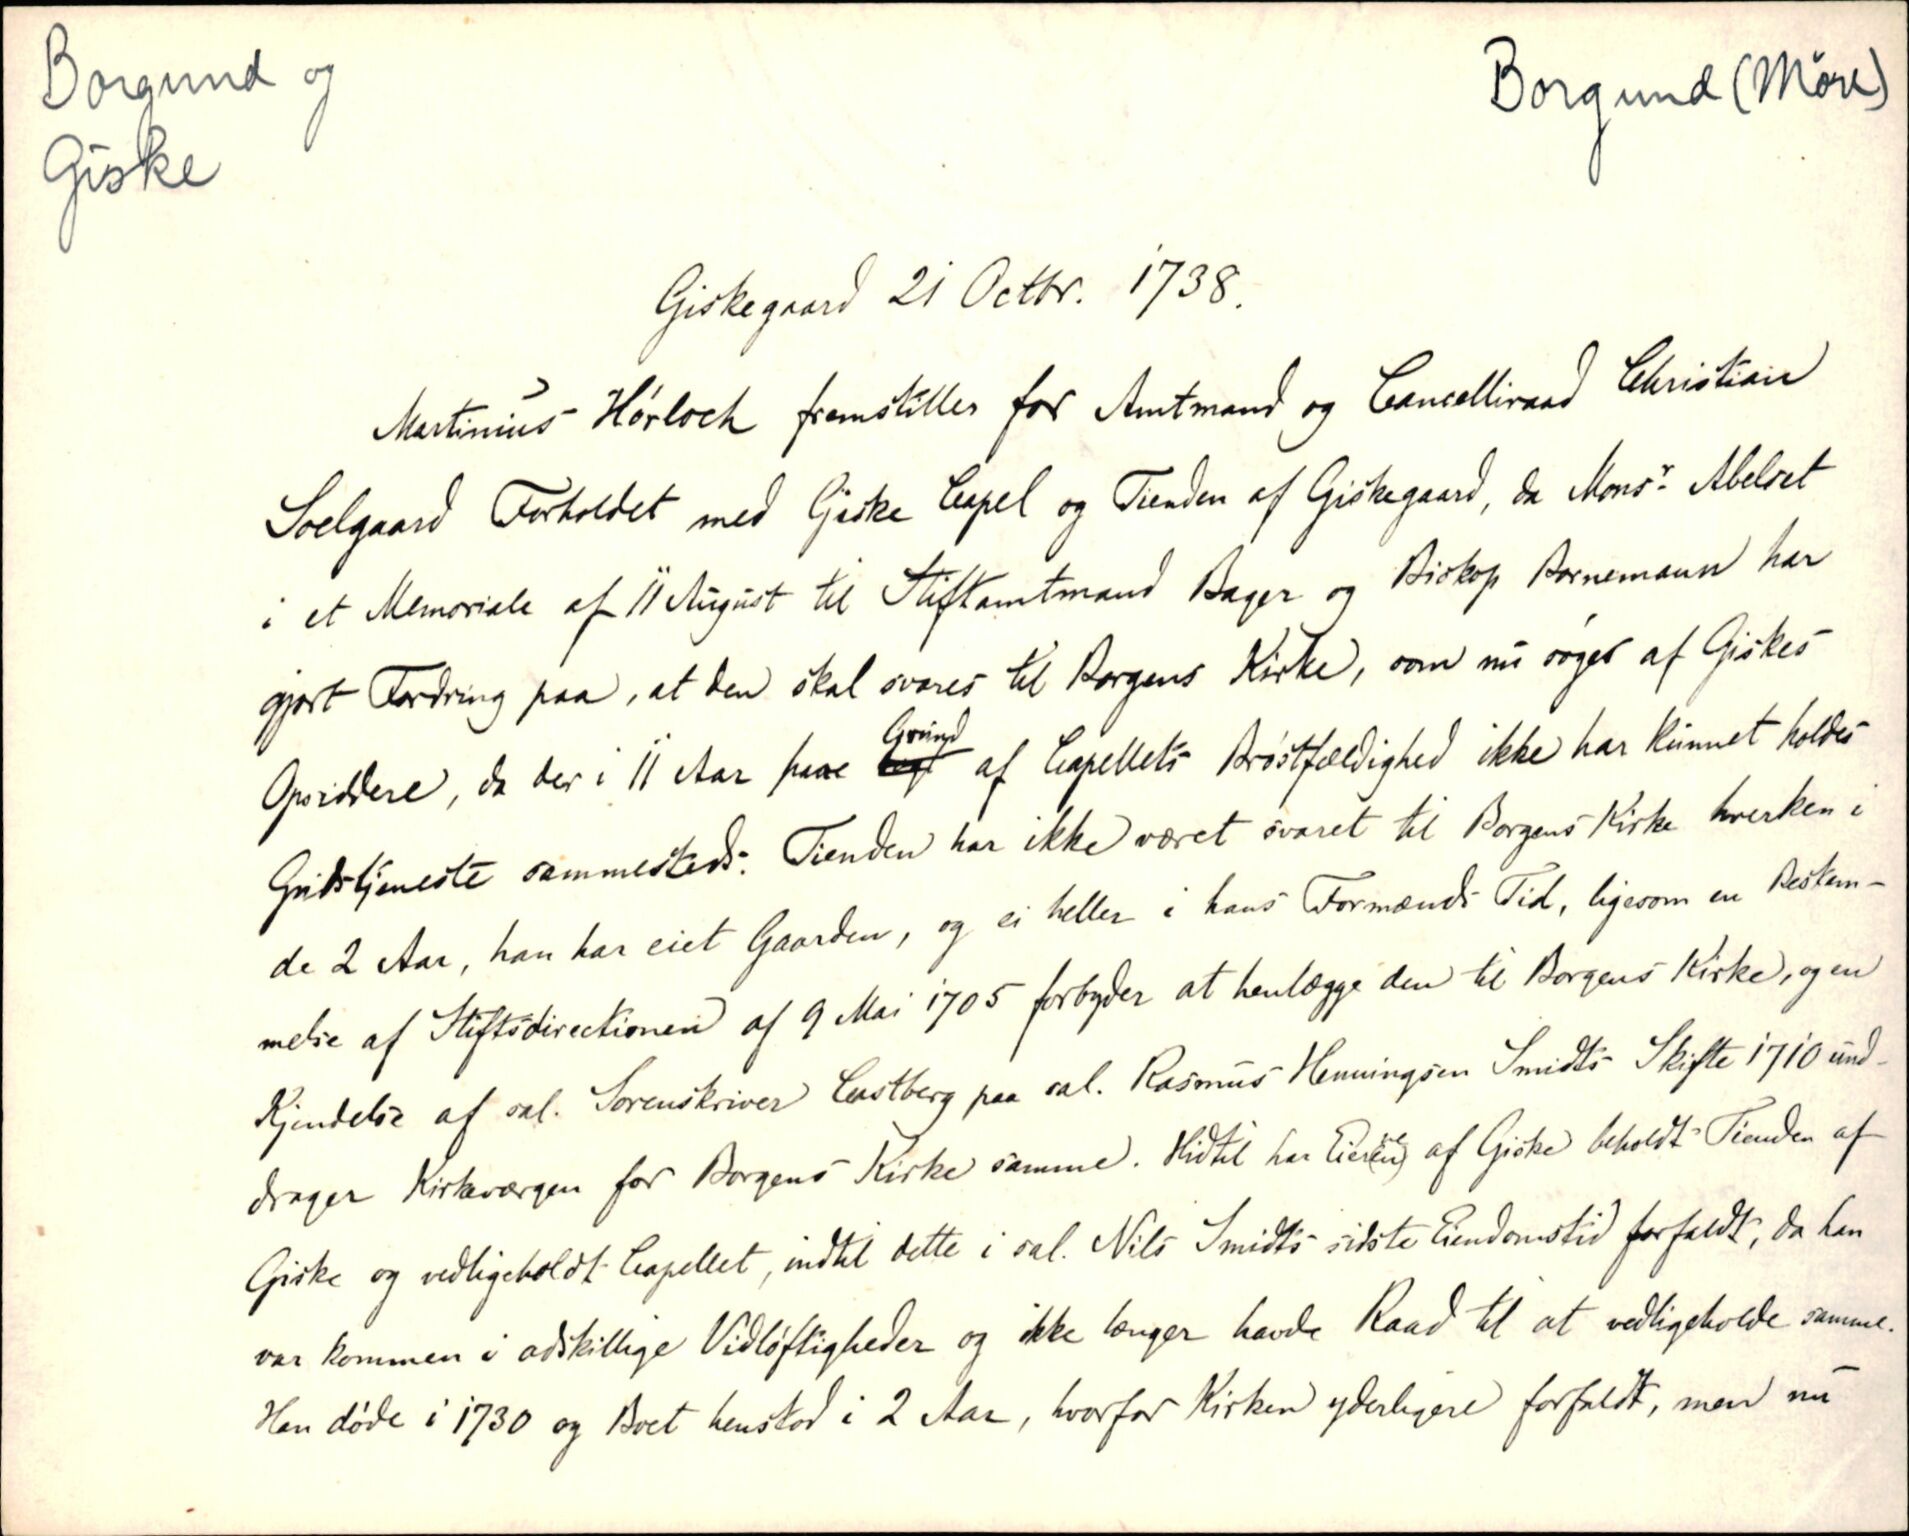 Borgund og
Giske
Borgund (Möre)
Giskegaard 21 Octbr. 1738.
Martinus Hórloch fremstiller for Amtmand og Cancelliraad Christian
Soelgaard Forholdet med Giske Capel og Tienden af Giskegaard, da Monsr. Abelset
i et Memoriale af 11 August til Stiftamtmand Bager og Biskop Bornemann har
gjort Fordring paa, at den skal svares til Borgens Kirke, som nu søges af Giskes
Opsiddere, da der i 11 Aar paa Grund af Capellets Brøstfældighed ikke har kunnet holdes
Gudstjeneste sammesteds. Tienden har ikke været svaret til Borgens Kirke hverken i
de 2 Aar, han har eiet Gaarden, og ei heller i hans Formænds Tid, ligesom en Bestem-
melse af Stiftsdirectionen af 9 Mai 1705 forbyder at henlægge den til Borgens Kirke, og en
Kjendelse af sal. Sorenskriver Castberg paa sal. Rasmus Henningsen Smidts Skifte 1710 und-
drager Kirkeværgen for Borgens Kirke samme. Hidtil har Eieren af Giske beholdt Tienden af
Giske og vedligeholdt Capellet, indtil dette i sal. Nils Smidts sidste Eiendomstid forfaldt, da han
var kommen i adskillige Vidløftigheder og ikke længer havde Raad til at vedligeholde samme.
Han døde i 1730 og Boet henstod i 2 Aar, hvorfor Kirken yderligere forfaldt, men nu